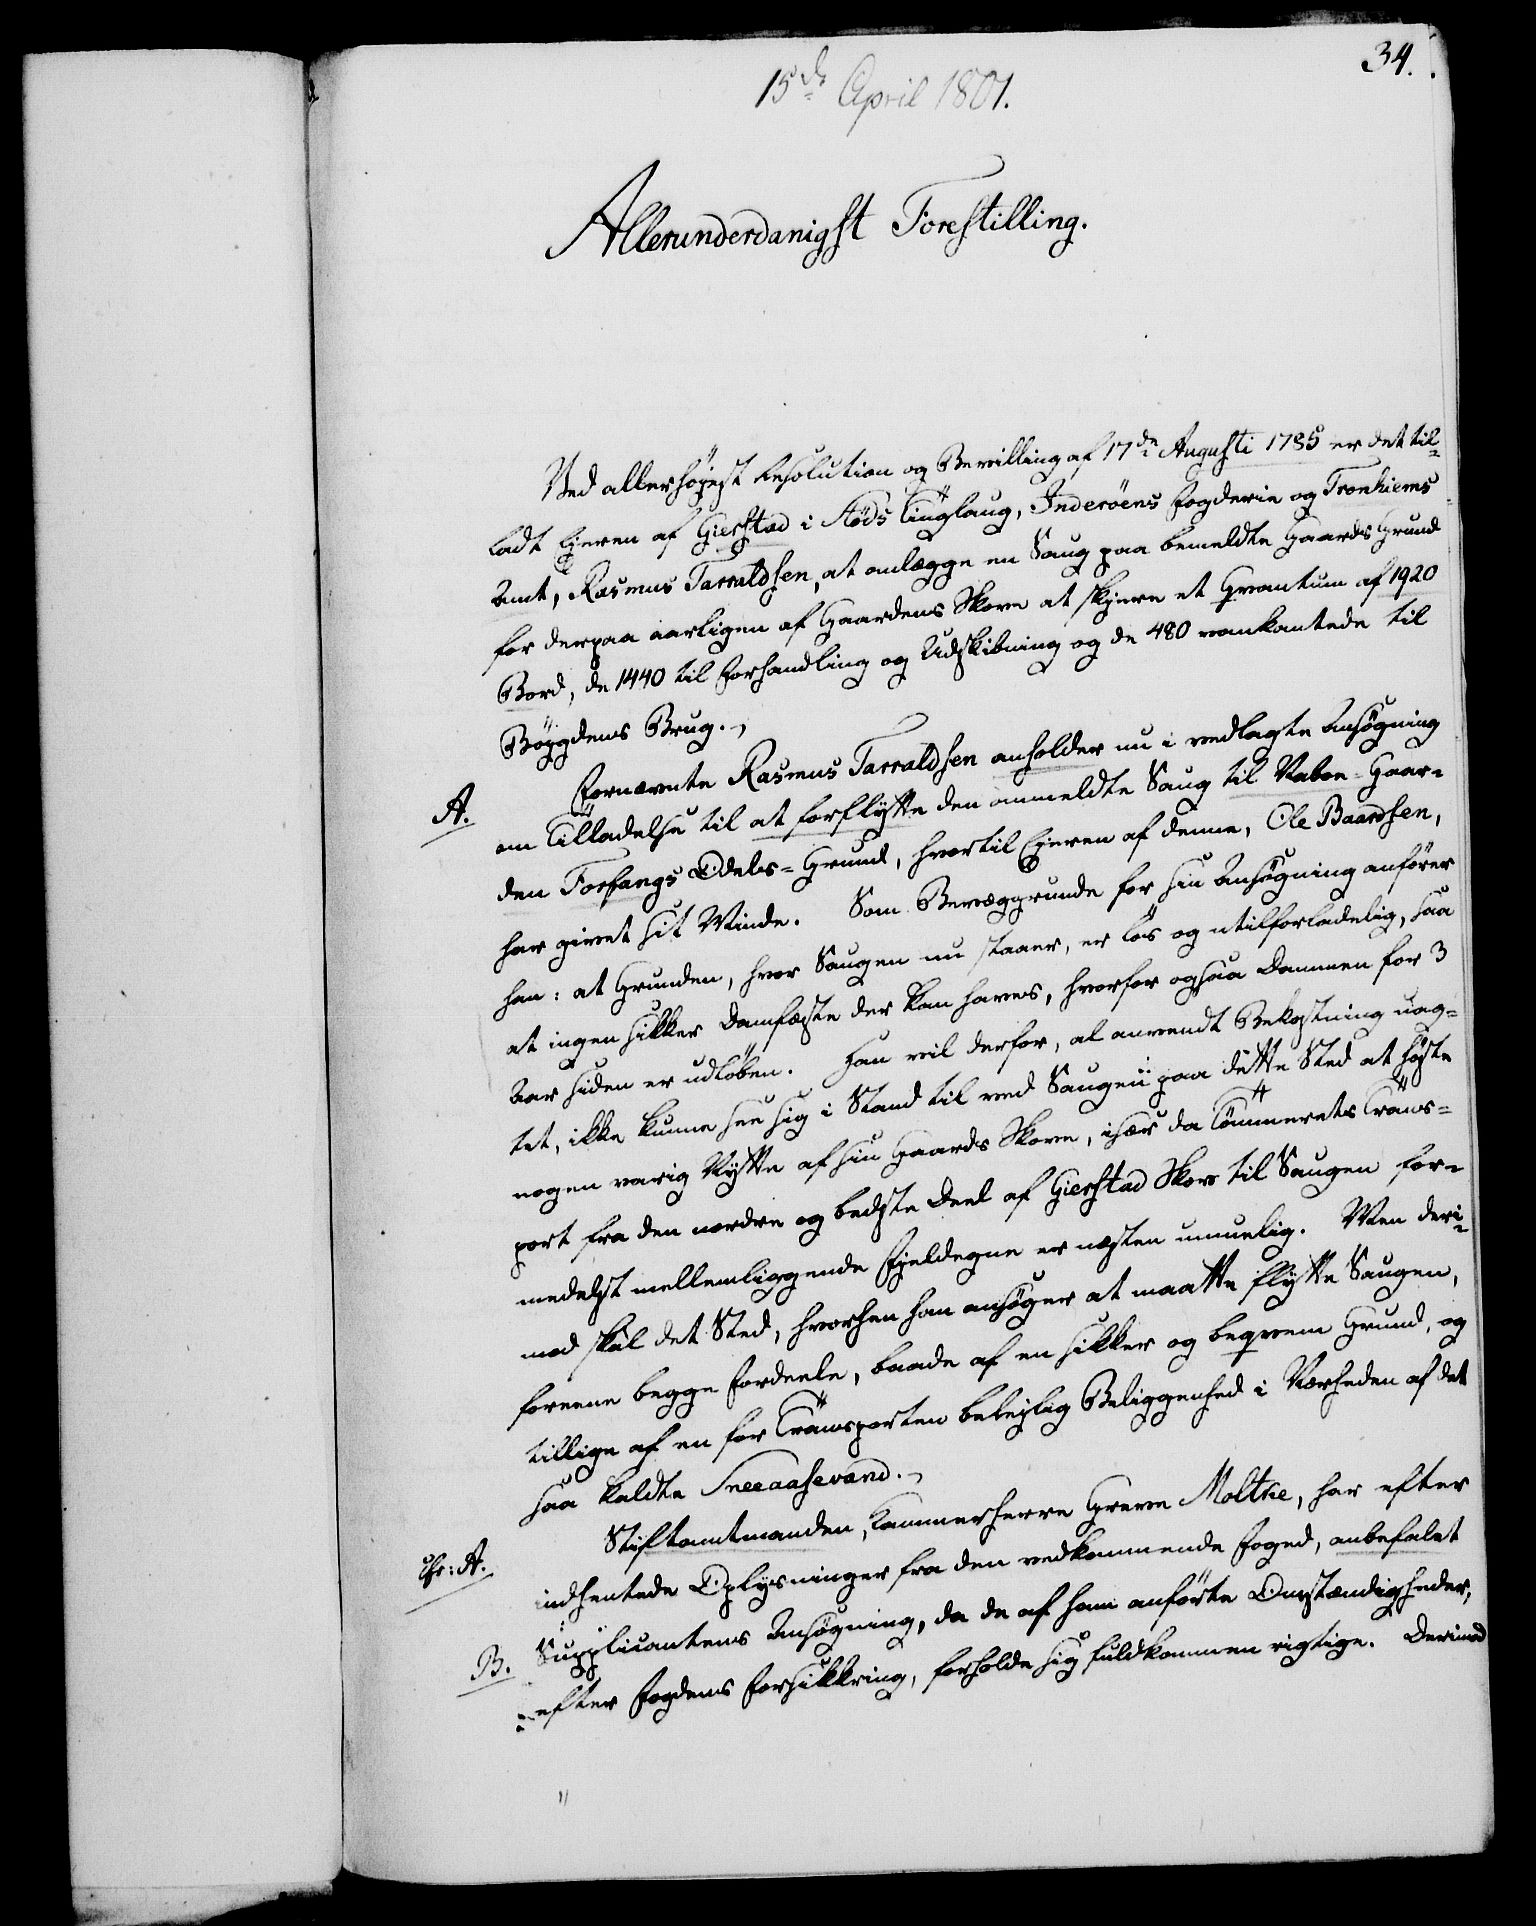 34.
15de April 1801.
Allerunderdanigst Forestilling.
Ved allerhøjest Resolution og Bevilling af 17de Augusti 1785 er det til-
ladt Ejeren af Gierstad i Støds Tinglaug, Inderöens Fogderie og Tronhiems
Amt, Rasmus Tarraldsen, at anlægge en Saug paa bemeldte Gaards Grund
for derpaa aarligen af Gaardens Skove at skjære et Qvantum af 1920
Bord, de 1440 til Forhandling og Udskibning og de 480 vankantede til
Böygdens Brug.
A.
Fornævnte Rasmus Tarraldsen anholder nu i vedlagte Ansøgning
om Tilladelse til at forflytte den ommeldte Saug til Naboe-Gaar-
den Forfangs Odels-Grund, hvortil Ejeren af denne, Ole Baardsen,
har givet sit Minde. Som Bevæggrunde for sin Ansøgning anfører
han: at Grunden, hvor Saugen nu staaer, er løs og utilforladelig, saa
at ingen sikker Damfæste der kan haves, hvorfor ogsaa Dammen for 3
Aar siden er udløben. Han vil derfor, al anvendt Bekostning uag-
tet, ikke kunne see sig i Stand til ved Saugen paa dette Sted at høste
nogen varig Nytte af sin Gaards Skove, især da Tømmerets Trans-
port fra den nordre og bedste Deel af Gierstad Skov til Saugen for-
medelst mellemliggende Fjeldegne er næsten umuelig. Men deri-
mod skal det Sted, hvorhen han ansøger at maatte flytte Saugen,
foreene begge Fordeele, baade af en sikker og beqvem Grund, og
tillige af en for Transporten belejlig Beliggenhed i Nærheden af det
saa kaldte Sneeaasevand.
Stiftamtmanden, Kammerherre Greve Moltke, har efter
cfr: A.
indhentede Oplysninger fra den vedkommende Foged, anbefalet
B.
Supplicantens Ansøgning, da de af ham anførte Omstændigheder,
efter Fogdens Forsikkring, forholde sig fuldkommen rigtige. Derimod